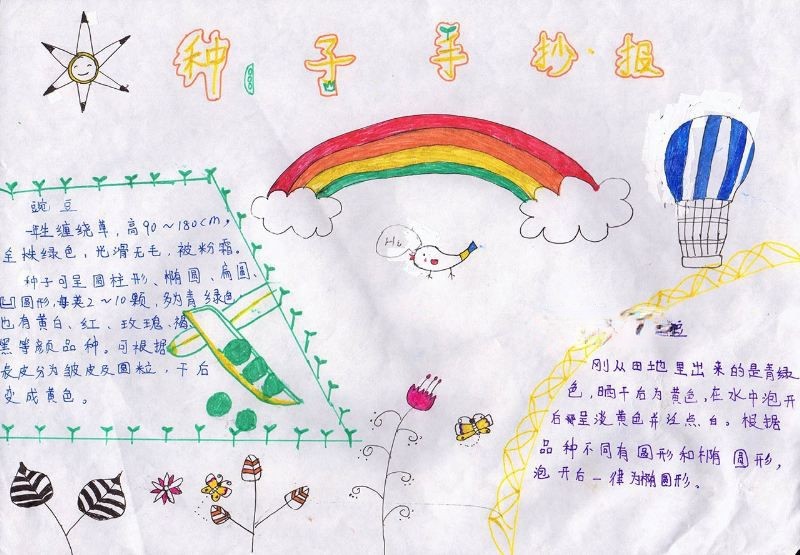 种子手抄·报
豌豆
一年生缠绕草，高90～180cm，
全株绿色，光滑无毛，被粉霜。
种子可呈圆柱形、椭圆、扁圆、
凹圆形，每荚2～10颗，多为青绿色
也有黄白、红、玫瑰、褐、
黑等颜品种。可根据
表皮分为皱皮及圆粒，干后
变成黄色。
Hi
豆
刚从田地里出来的是青绿
色，晒干后为黄色，在水中泡开
后呈淡黄色并泛点白。根据
品种不同有圆形和椭圆形，
泡开后一律为椭圆形。